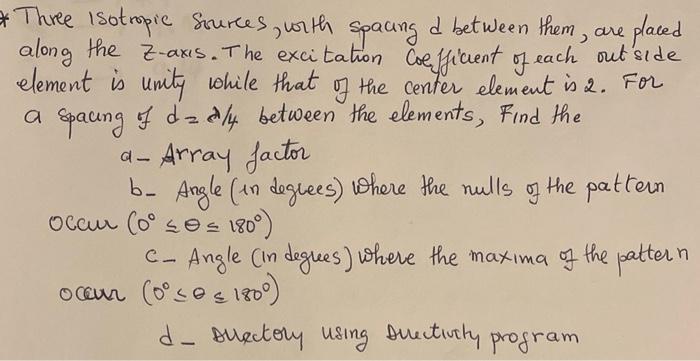 * Three isotropic sources, with spacing d between them, are placed
along the z-axis. The excitation coefficient of each outside
element is unity while that of the center element is 2. For
a spacing of d = λ/4 between the elements, Find the
a- Array factor
b- Angle (in degrees) where the nulls of the pattern
occur (0° ≤ θ ≤ 180°)
c- Angle (in degrees) where the maxima of the pattern
occur (0° ≤ θ ≤ 180°)
d- using program